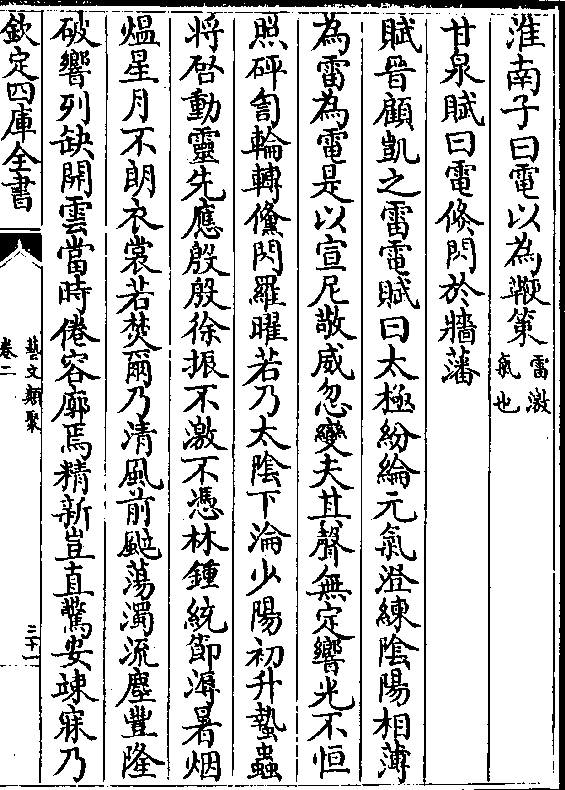 淮南子曰電以為鞭策雷激氣也
甘泉賦曰電倐閃於牆藩
賦晋顧凱之雷電賦曰太極紛綸元氣澄練陰陽相薄
為雷為電是以宣尼敬威忽變夫其聲無定響光不恒
照砰訇輪轉儻閃羅曜若乃太陰下淪少陽初升蟄蟲
將啓動靈先應殷殷徐振不激不憑林鍾統節溽暑烟
熅星月不朗衣裳若焚爾乃清風前颭蕩濁流塵豐隆
破響列缺開雲當時倦容廓焉精新豈直驚安竦寐乃
欽定四庫全書
藝文類聚
卷二
三十一